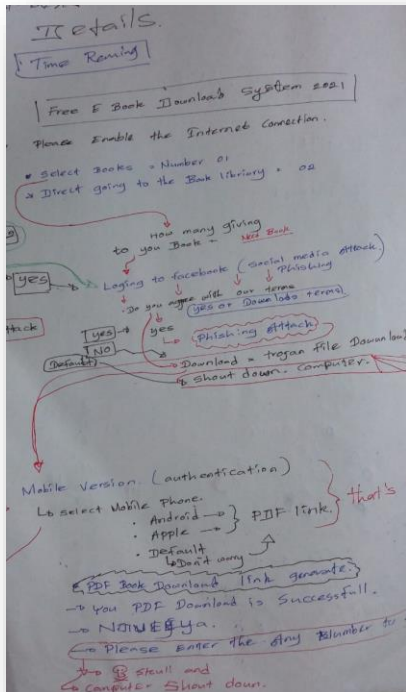 Details.
Time Reming
Free E Book Download System 2021
Please Enable the Internet Connection.
Select Books = Number 01
Direct going to the Book libriory = 02
How many giving
to you Book = Next Book
yes
Loging to facebook (social media attack.
Phishing
Do you agree with our terms
yes or Download terms
ttack
yes
yes
NO
Phishing Attack
Default
Download = trojan File Downnload
Shout down. Computer.
Mobile Version. (authentication)
select Mobile Phone.
Android
Apple
PDF link.
that's
Default
Don't away
PDF Book Download link genarate.
You PDF Download is Successfull.
Please Enter the Any Number to
Skull and
Computer Shout down.